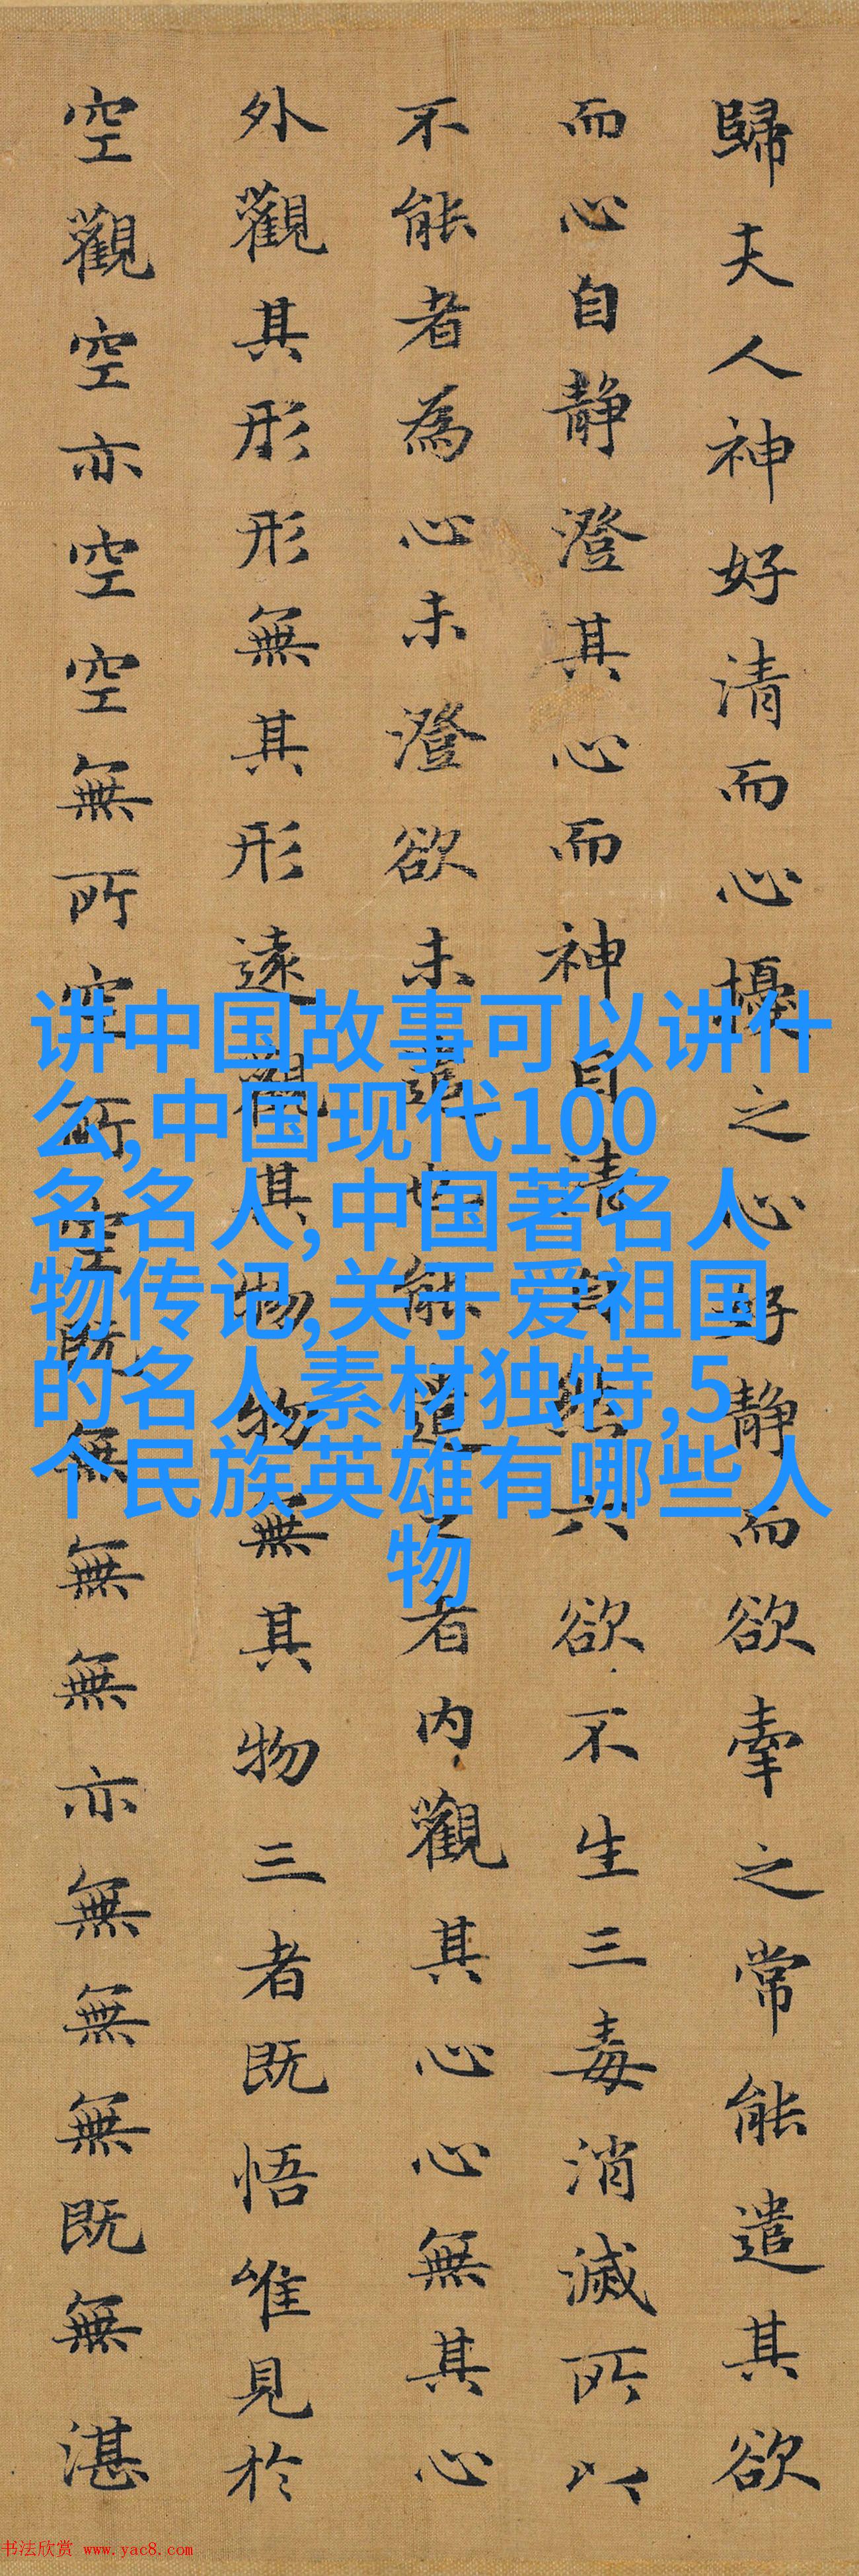 歸夫人神好清而心擾之心好靜而欲牽之常能遣其欲
而心自靜澄其心而神自清自然六欲不生三毒消滅所以
不能者為心未澄欲未遣也能遣之者內觀其心心無其心
外觀其形形無其形遠觀其物物無其物三者既悟唯見於
空觀空亦空空無所空所空既無無無亦無無無既無湛
讲中国故事可以讲什
么,中国现代100
名名人,中国著名人
物传记,关于爱祖国
的名人素材独特,5
个民族英雄有哪些人
物
书法欣赏 www.yac8.com